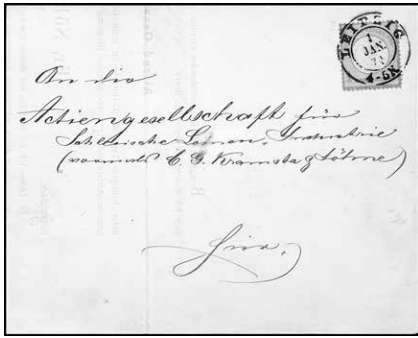 LEIPZIG
1
JAN.
4-5N
An die
Actiengesellschaft für
Schlesische Leinen-Industrie
(vormals C. G. Kramsta & Söhne)
hier.